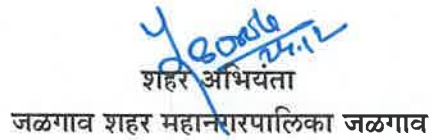 24.12
शहर अभियंता
जळगाव शहर महानगरपालिका जळगाव